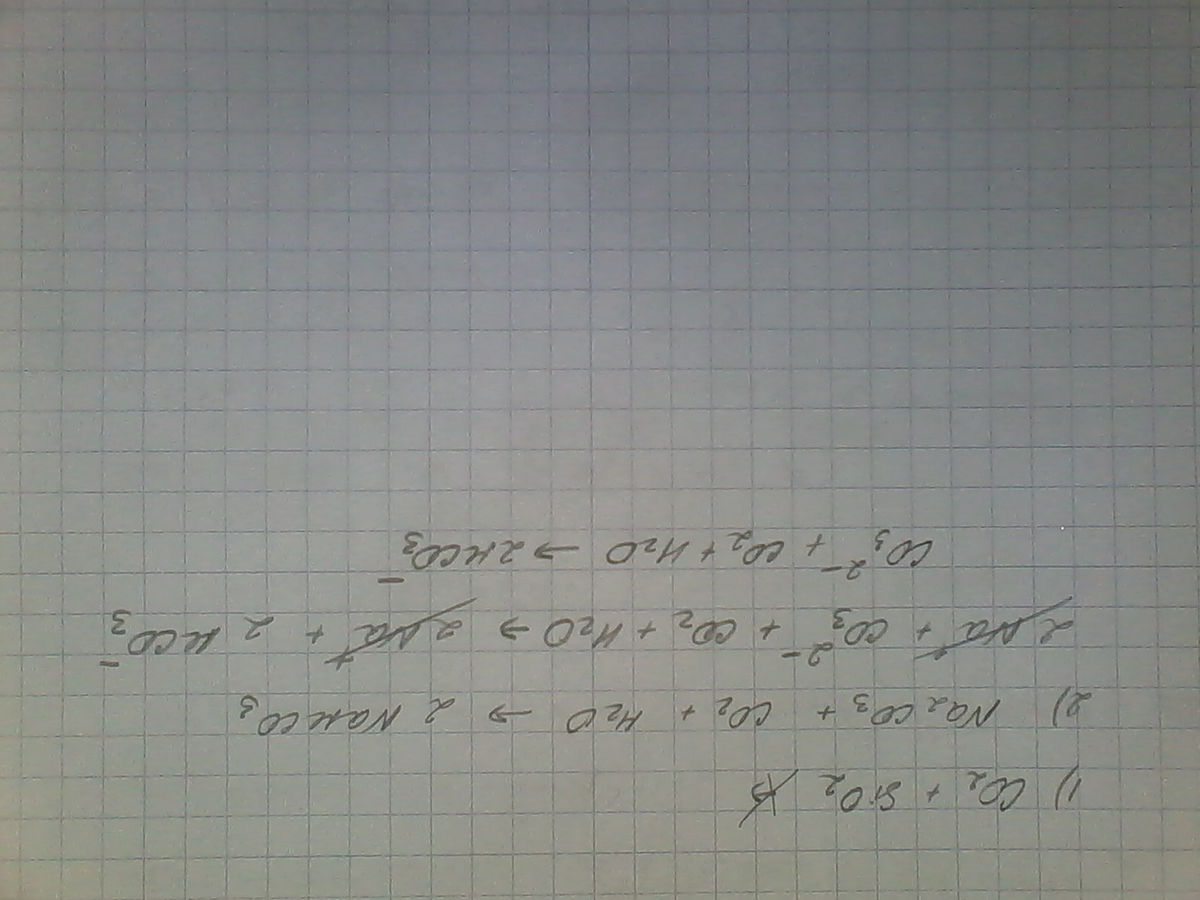 1) CO₂ + SiO₂ ↛
2) Na₂CO₃ + CO₂ + H₂O → 2 NaHCO₃
2Na⁺ + CO₃²⁻ + CO₂ + H₂O → 2Na⁺ + 2 HCO₃⁻
CO₃²⁻ + CO₂ + H₂O → 2HCO₃⁻